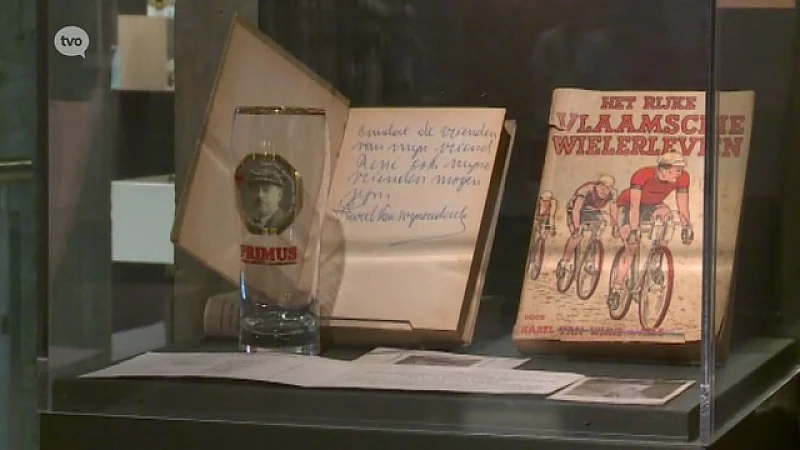 tvo
omdat de vrienden
van mijn vriend
René ook mijne
vrienden mogen
zijn
Karel Van Wynendaele
PRIMUS
HET RIJKE
VLAAMSCHE
WIELERLEVEN
DOOR
KAREL VAN WIJNENDAELE